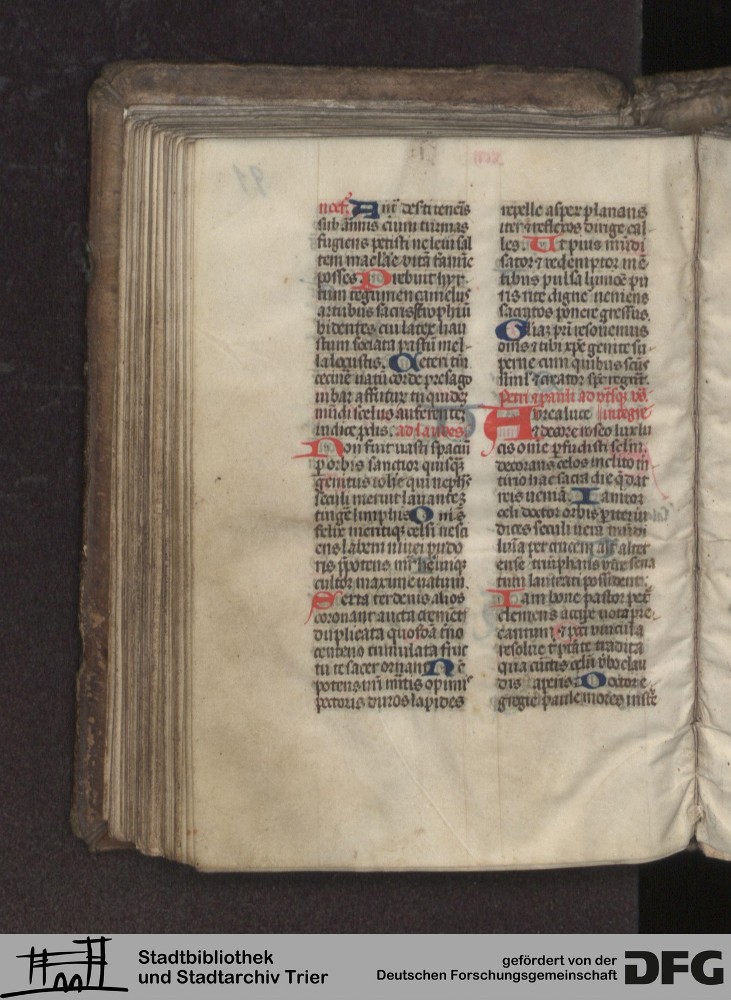 noct. Antra deserti teneris
sub annis ciuium turmas
fugiens petisti ne leui sal
tem maclare vitā famine
posses. Prebuit hyr
tum tegumen camelus
artubus sacris strophiū
bidentes cui latex hau
stum sociata pastū mel
la locustis. Ceteri tm̄
cecinere vatū corde presago
iubar affuturū tu quidem
mūdi scelus auferentē
indice prodis. ad laudes
Non fuit vasti spaciū
p orbis sanctior quisq̄
genitus iohe qui nephas
seculi meruit lauantē
tingere limphis. O nimis
felix meritiq celsi nesci
ens labem niuei pudo
ris prepotens martir heremiq
cultor maxime vatum.
Serta ter denis alios
coronant aucta crementis
duplicata quosdā trino
centeno cumulata fructu
tu te sacer ornant. Nūc
potens nrī meritis opimis
pectoris duros lapides
repelle asperū planans
iter et reflexos dirige cal
les. Ut pius mūdi
sator et redemptor mē
tibus pulsa liuione pu
ris rite dignetur veniens
sacratos ponere gressus.
Gloria patri resonemus
omēs et tibi xpe genite su
perne cum quibus scūs
simul et creator sps regnat.
Petri et pauli ad vtrāsq vēs
Aurea luce
et decore roseo lux lu
cis omne perfudisti seclm
decorans celos inclito m
tirio hac sacra die que dat
reis veniā. Ianitor
celi doctor orbis pariter iu
dices seculi vera mūdi
lumīa per crucem alter
ense triumphans vite sena
tum laureati possident.
Iam bone pastor petre
clemens accipe vota pre
cantum et peccati vincula
resolue tibi ptāte tradita
qua cūctis celū vbo clau
dis aperis. Doctor e
gregie paule mores instrue
Stadtbibliothek
und Stadtarchiv Trier
gefördert von der
Deutschen Forschungsgemeinschaft
DFG